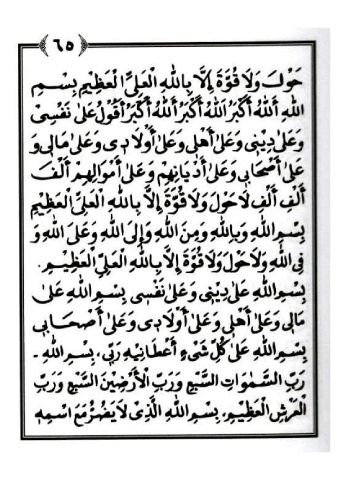 ٦٥
حَوْلَ وَلَا قُوَّةَ إِلَّا بِاللهِ الْعَلِيِّ الْعَظِيْمِ بِسْمِ
اللهِ اَللهُ اَكْبَرُ اَللهُ اَكْبَرُ اَللهُ اَكْبَرُ اَقُوْلُ عَلَى نَفْسِيْ
وَعَلَى دِيْنِيْ وَعَلَى أَهْلِيْ وَعَلَى أَوْلَادِيْ وَعَلَى مَالِيْ وَ
عَلَى أَصْحَابِيْ وَعَلَى أَدْيَانِهِمْ وَعَلَى أَمْوَالِهِمْ أَلْفَ
أَلْفِ أَلْفِ لَاحَوْلَ وَلَا قُوَّةَ إِلَّا بِاللهِ الْعَلِيِّ الْعَظِيْمِ
بِسْمِ اللهِ وَبِاللهِ وَمِنَ اللهِ وَإِلَى اللهِ وَعَلَى اللهِ وَ
فِي اللهِ وَلَاحَوْلَ وَلَا قُوَّةَ إِلَّا بِاللهِ الْعَلِيِّ الْعَظِيْمِ.
بِسْمِ اللهِ عَلَى دِيْنِيْ وَعَلَى نَفْسِيْ بِسْمِ اللهِ عَلَى
مَالِيْ وَعَلَى أَهْلِيْ وَعَلَى أَوْلَادِيْ وَعَلَى أَصْحَابِيْ
بِسْمِ اللهِ عَلَى كُلِّ شَيْءٍ أَعْطَانِيْهِ رَبِّيْ، بِسْمِ اللهِ -
رَبِّ السَّمٰوَاتِ السَّبْعِ وَرَبِّ الْأَرْضِيْنَ السَّبْعِ وَرَبِّ
الْعَرْشِ الْعَظِيْمِ، بِسْمِ اللهِ الَّذِيْ لَا يَضُرُّ مَعَ اسْمِهِ